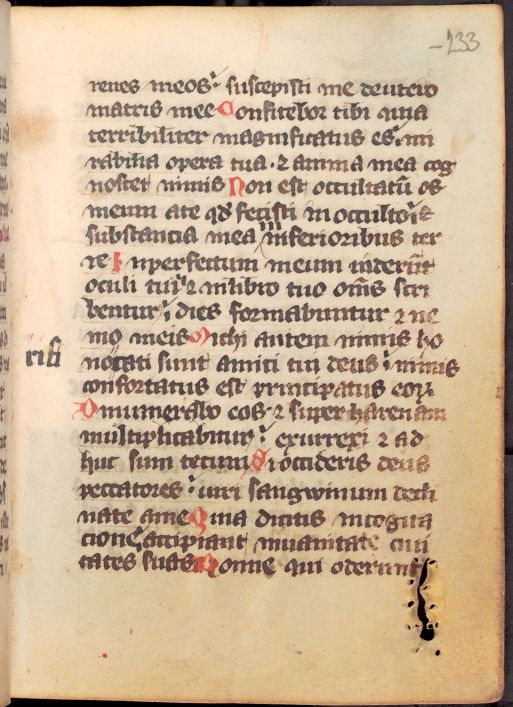 -233
renes meos: suscepisti me deutero
matris mee Confitebor tibi quia
terribiliter magnificatus es: mi
rabilia opera tua · ⁊ anima mea cog
noscet nimis Non est occultatū os
meum a te qd̄ fecisti in occulto: ⁊
substancia mea in inferioribus ter
re Inperfectum meum uiderūt
oculi tui: ⁊ in libro tuo om̄s scri
bentur: dies formabuntur ⁊ ne
mo in eis Michi autem nimis ho
risi
norati sunt amici tui deus: nimis
confortatus est principatus eoꝝ
Dinumerabo eos ⁊ super harenam
multiplicabuntur: exurrexi ⁊ ad
huc sum tecum Si occideris deus
peccatores: uiri sangwinum decli
nate a me Quia dicitis in cogita
cione accipiant in uanitate ciui
tates suas Nonne qui oderunt